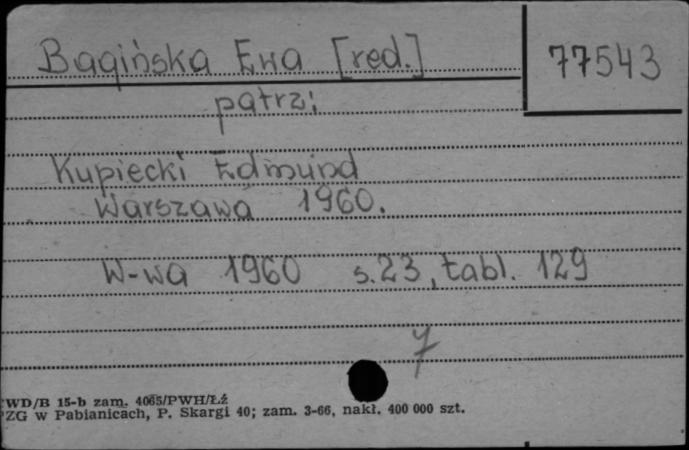 Bagińska Ewa [red.]
77543
patrz:
Kupiecki Edmund
Warszawa 1960.
W-wa 1960 s.23, tabl. 129
7
WD/B 15-b zam. 4065/PWH/Łź
PZG w Pabianicach, P. Skargi 40; zam. 3-66, nakł. 400 000 szt.